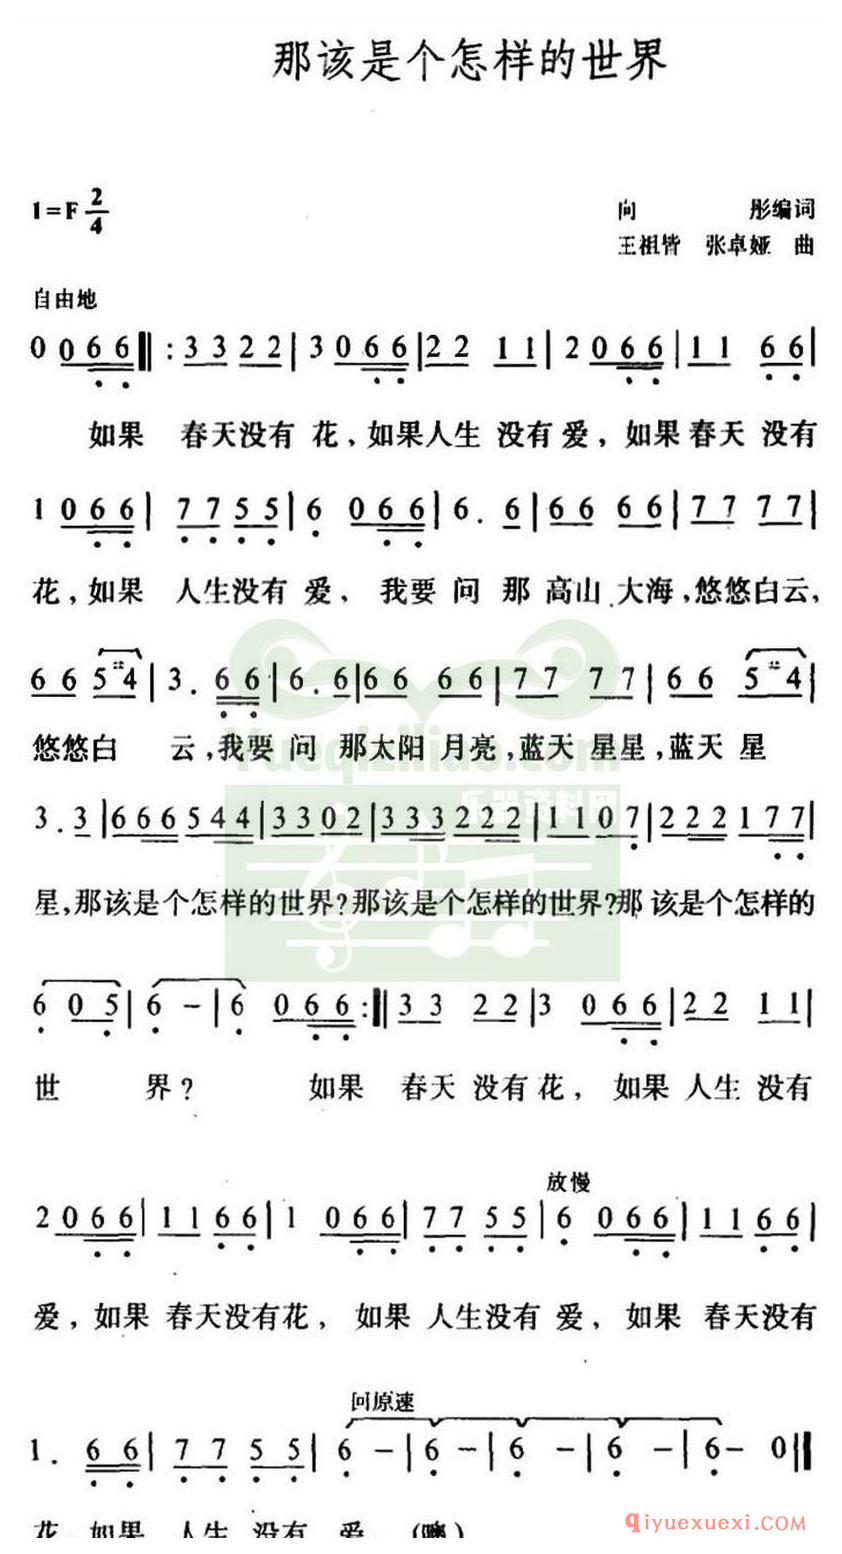 那该是个怎样的世界
1=F 2/4
向 彤编词
王祖皆 张卓娅 曲
自由地
0 0 6 6 ‖: 3 3 2 2 | 3 0 6 6 | 2 2 1 1 | 2 0 6 6 | 1 1 6 6 |
如果 春天没有 花，如果人生 没有爱，如果春天 没有
1 0 6 6 | 7 7 5 5 | 6 0 6 6 | 6 . 6 | 6 6 6 6 | 7 7 7 7 |
花，如果 人生没有 爱、 我要 问 那 高山 大海，悠悠白云，
6 6 5 4 | 3 . 6 6 | 6 . 6 | 6 6 6 6 | 7 7 7 7 | 6 6 5 4 |
悠悠白 云，我要 问 那太阳 月亮，蓝天 星星，蓝天 星
Yueqiziliao.com
乐器资料网
3 . 3 | 6 6 6 5 4 4 | 3 3 0 2 | 3 3 3 2 2 2 | 1 1 0 7 | 2 2 2 1 7 7 |
星，那该是个怎样的世界？那该是个怎样的世界？那 该是个怎样的
6 0 5 | 6 – | 6 0 6 6 :‖ 3 3 2 2 | 3 0 6 6 | 2 2 1 1 |
世 界？ 如果 春天 没有花， 如果 人生 没有
放慢
2 0 6 6 | 1 1 6 6 | 1 0 6 6 | 7 7 5 5 | 6 0 6 6 | 1 1 6 6 |
爱，如果 春天没有花， 如果 人生没有 爱， 如果 春天没有
回原速
1 . 6 6 | 7 7 5 5 | 6 – | 6 – | 6 – | 6 – | 6 – 0 ‖
花 如果 人生 没有 爱
qiyuexuexi.com